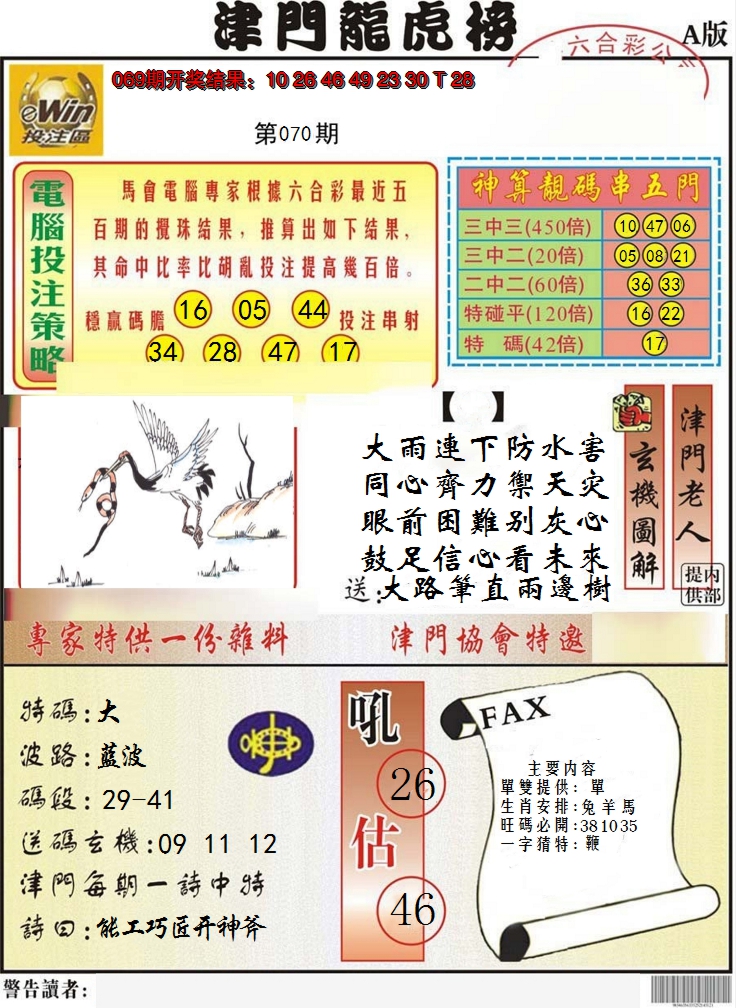 津門龍虎榜
A版
六合彩公司
eWin
投注區
069期开奖结果：10 26 46 49 23 30 T 28
第070期
電腦投注策略
馬會電腦專家根據六合彩最近五
百期的攪珠结果，推算出如下结果，
其命中比率比胡亂投注提高幾百倍。
穩贏碼膽 16 05 44 投注串射
34 28 47 17
神算靚碼串五門
三中三(450倍) 10 47 06
三中二(20倍) 05 08 21
二中二(60倍) 36 33
特碰平(120倍) 16 22
特 碼(42倍) 17
【 】
大雨連下防水害
同心齊力禦天灾
眼前困難别灰心
鼓足信心看未來
送:大路筆直兩邊樹
玄機圖解
津門老人
内部提供
專家特供一份雜料
津門協會特邀
特碼:大
波路:藍波
碼段:29-41
送碼玄機:09 11 12
津門每期一詩中特
詩曰:能工巧匠开神斧
吼
26
估
46
FAX
主要内容
單雙提供：單
生肖安排:兔羊馬
旺碼必開:381035
一字猜特：鞭
警告讀者：